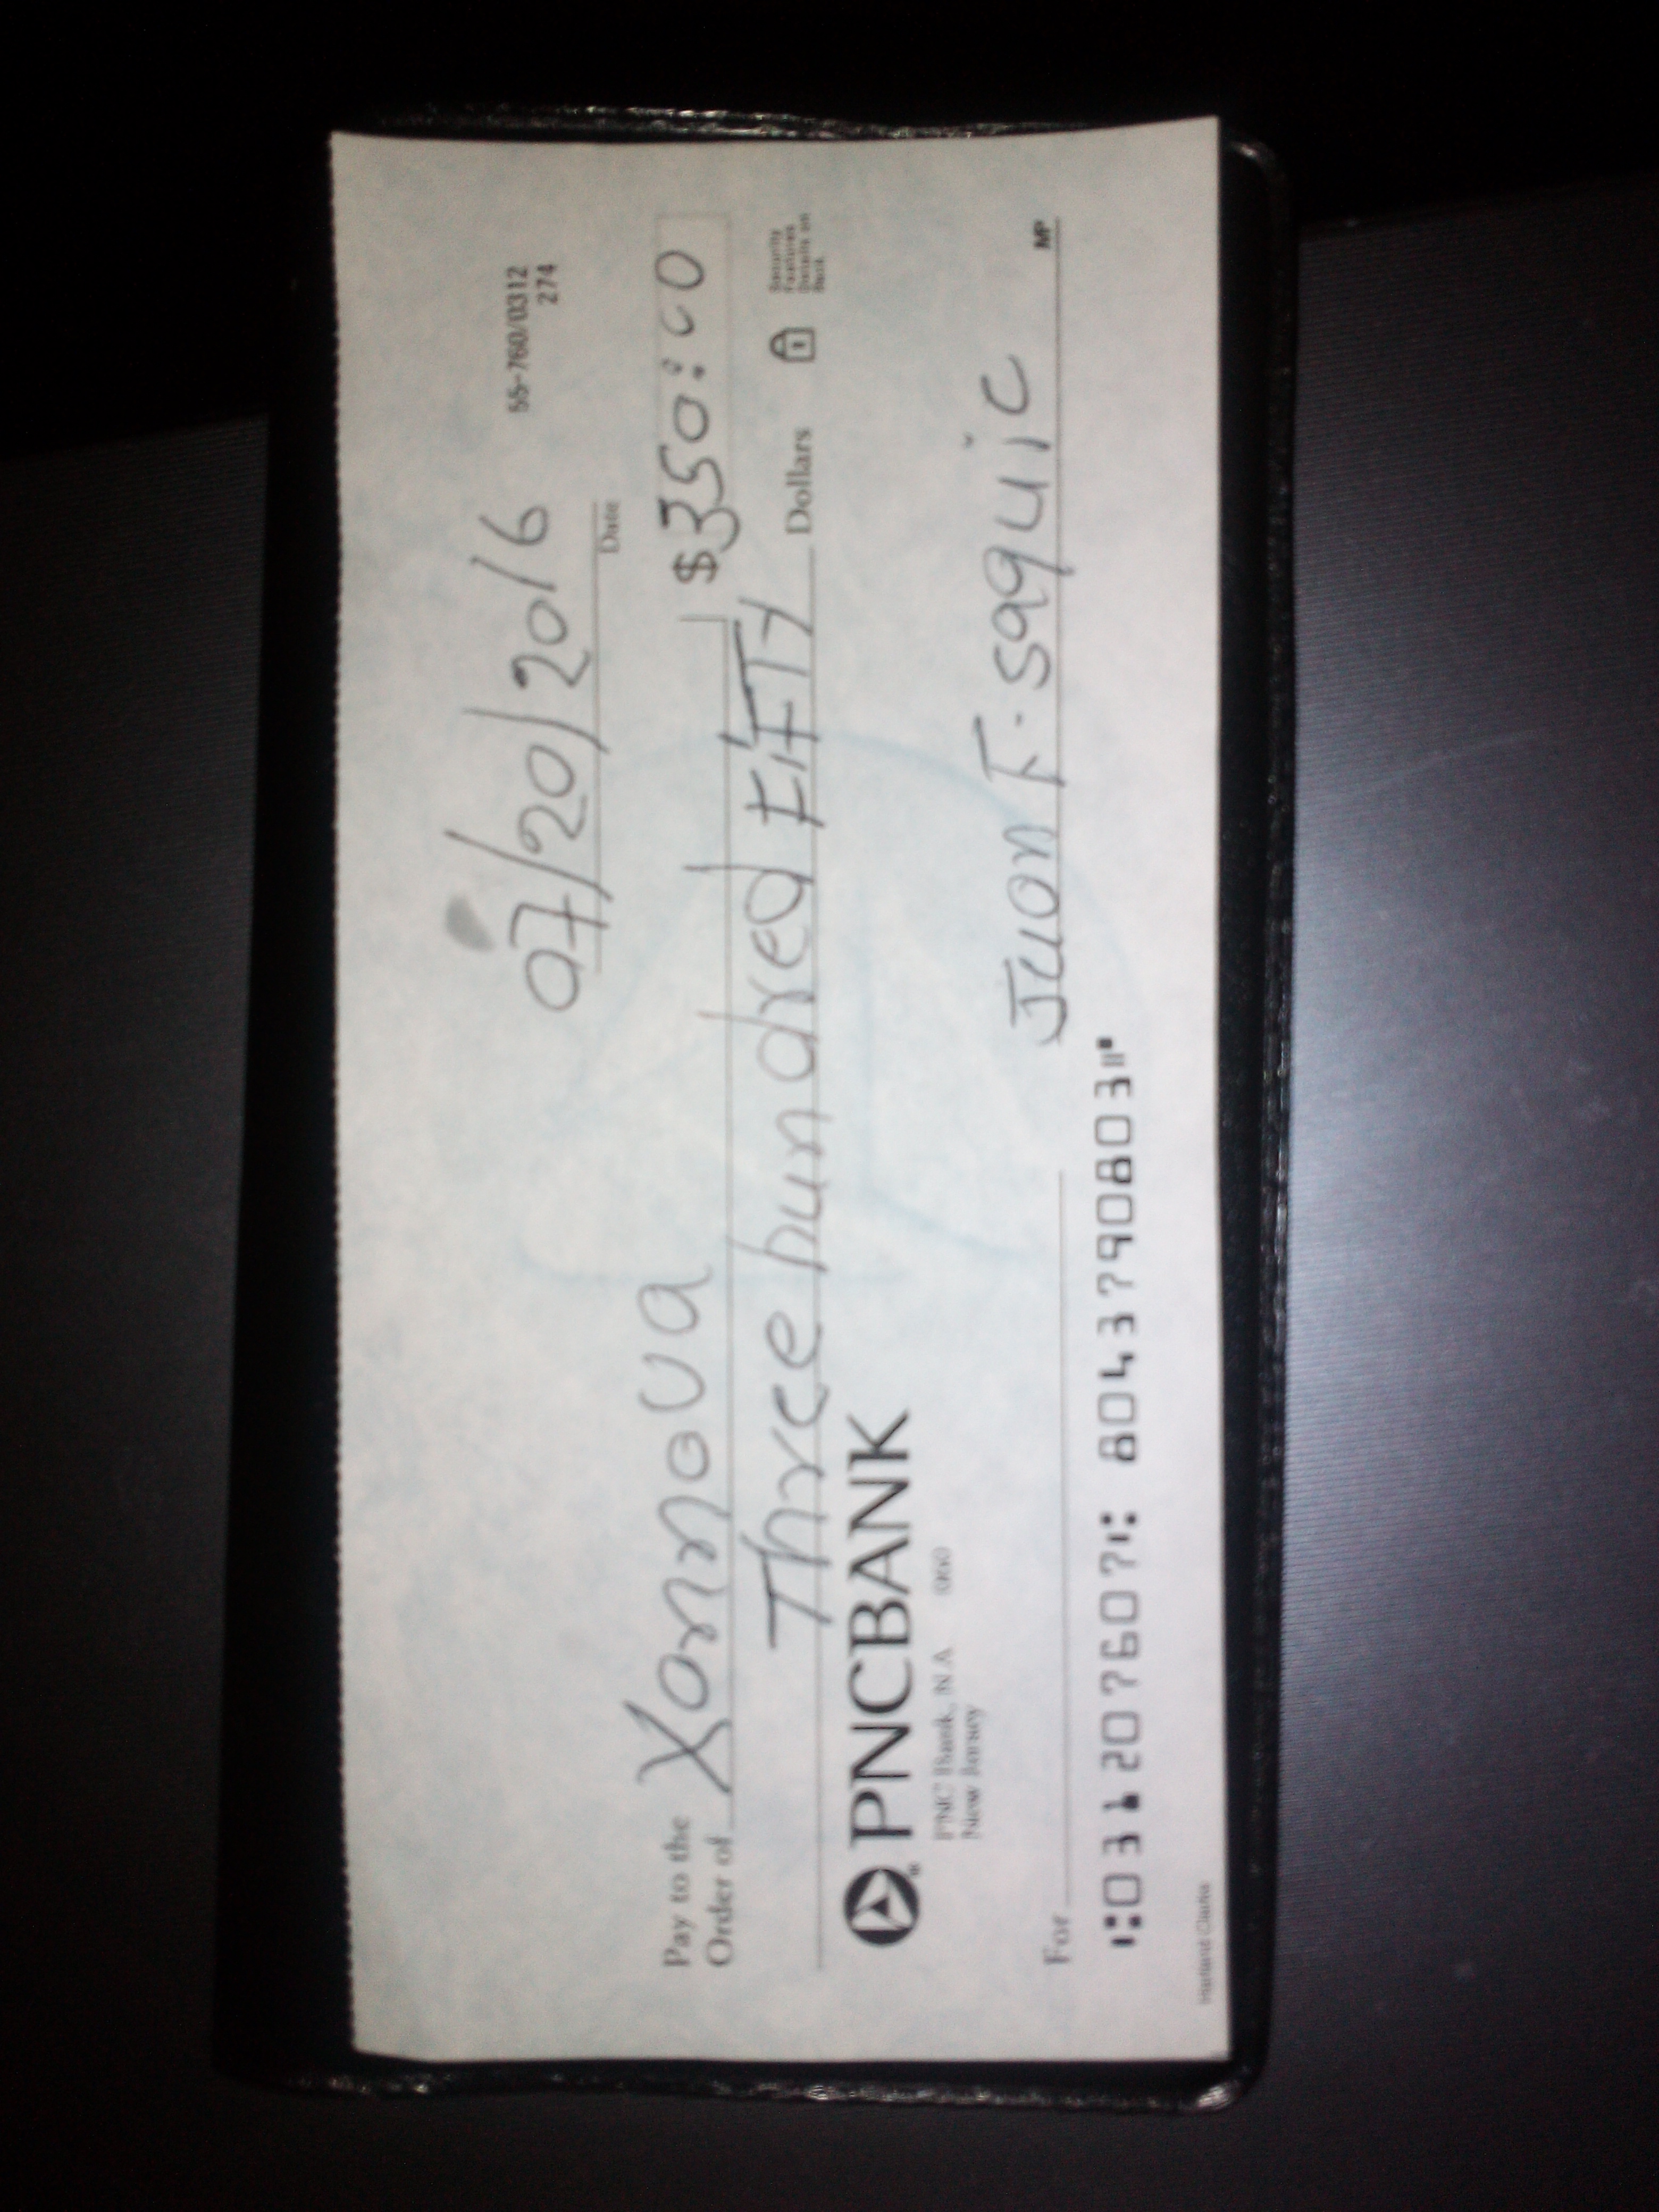 55-760/0312
274
07/20/2016
Date
Pay to the
Order of Xonnova $350:00
Three hundred FiFTY Dollars
Security
Features
Details on
Back
PNCBANK
PNC Bank, N.A. 060
New Jersey
For Juon F. Saquic MP
⑆031207607⑆ 8043790803⑈
Harland Clarke